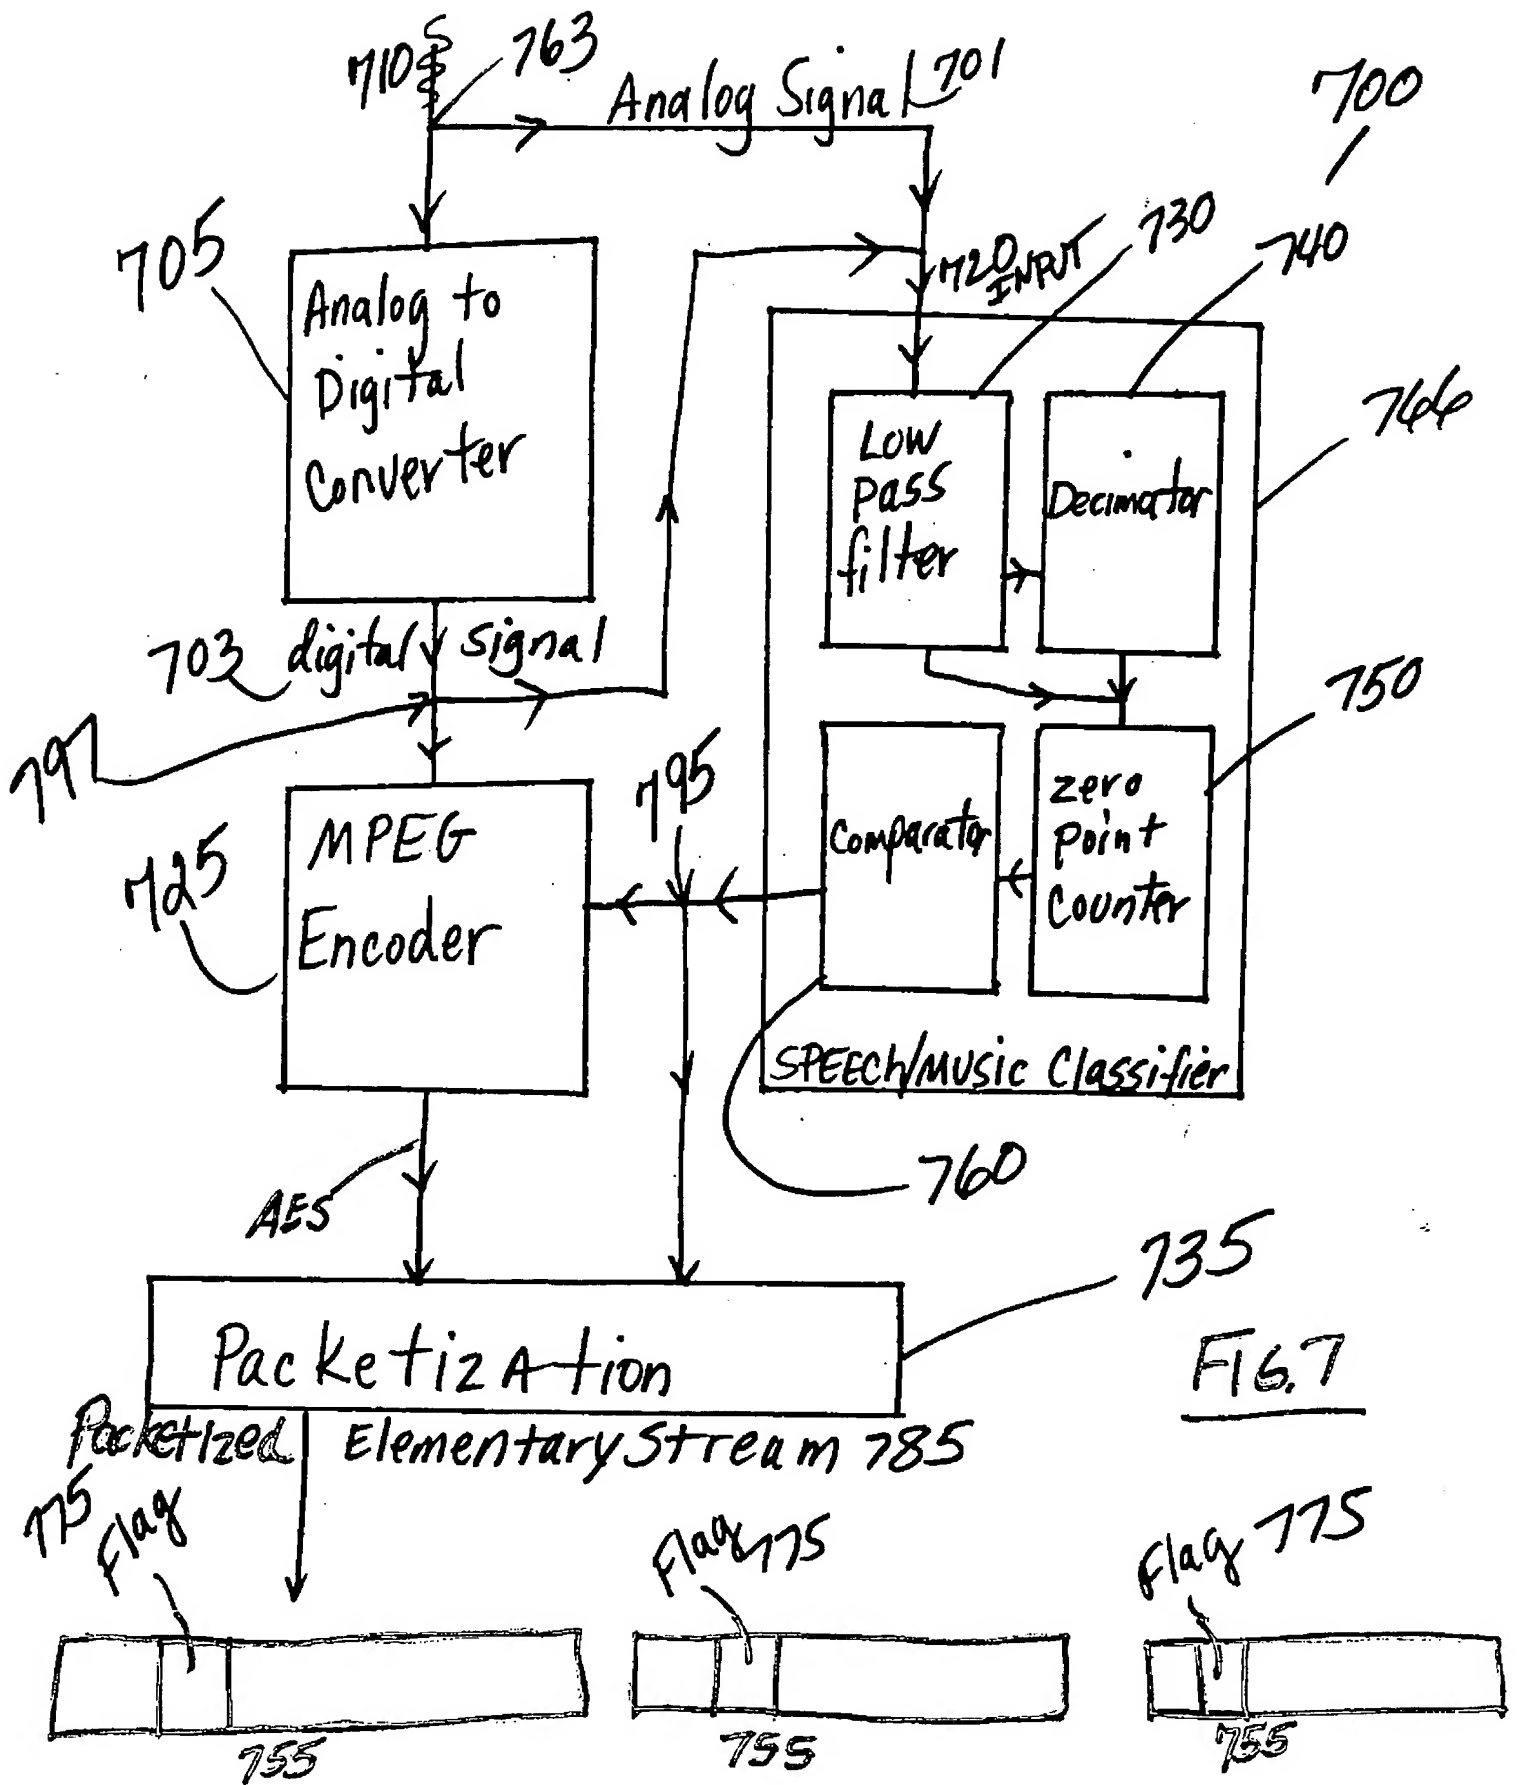 710
763
Analog Signal
701
700
705
Analog to
Digital
Converter
720
INPUT
730
740
Low
Pass
filter
Decimator
766
703 digital signal
797
795
750
MPEG
Encoder
725
Comparator
zero
Point
Counter
SPEECh/MUSic Classifier
760
AES
735
PacketizAtion
FIG. 7
Packetized Elementary Stream 785
775
Flag
Flag 775
Flag 775
755
755
755